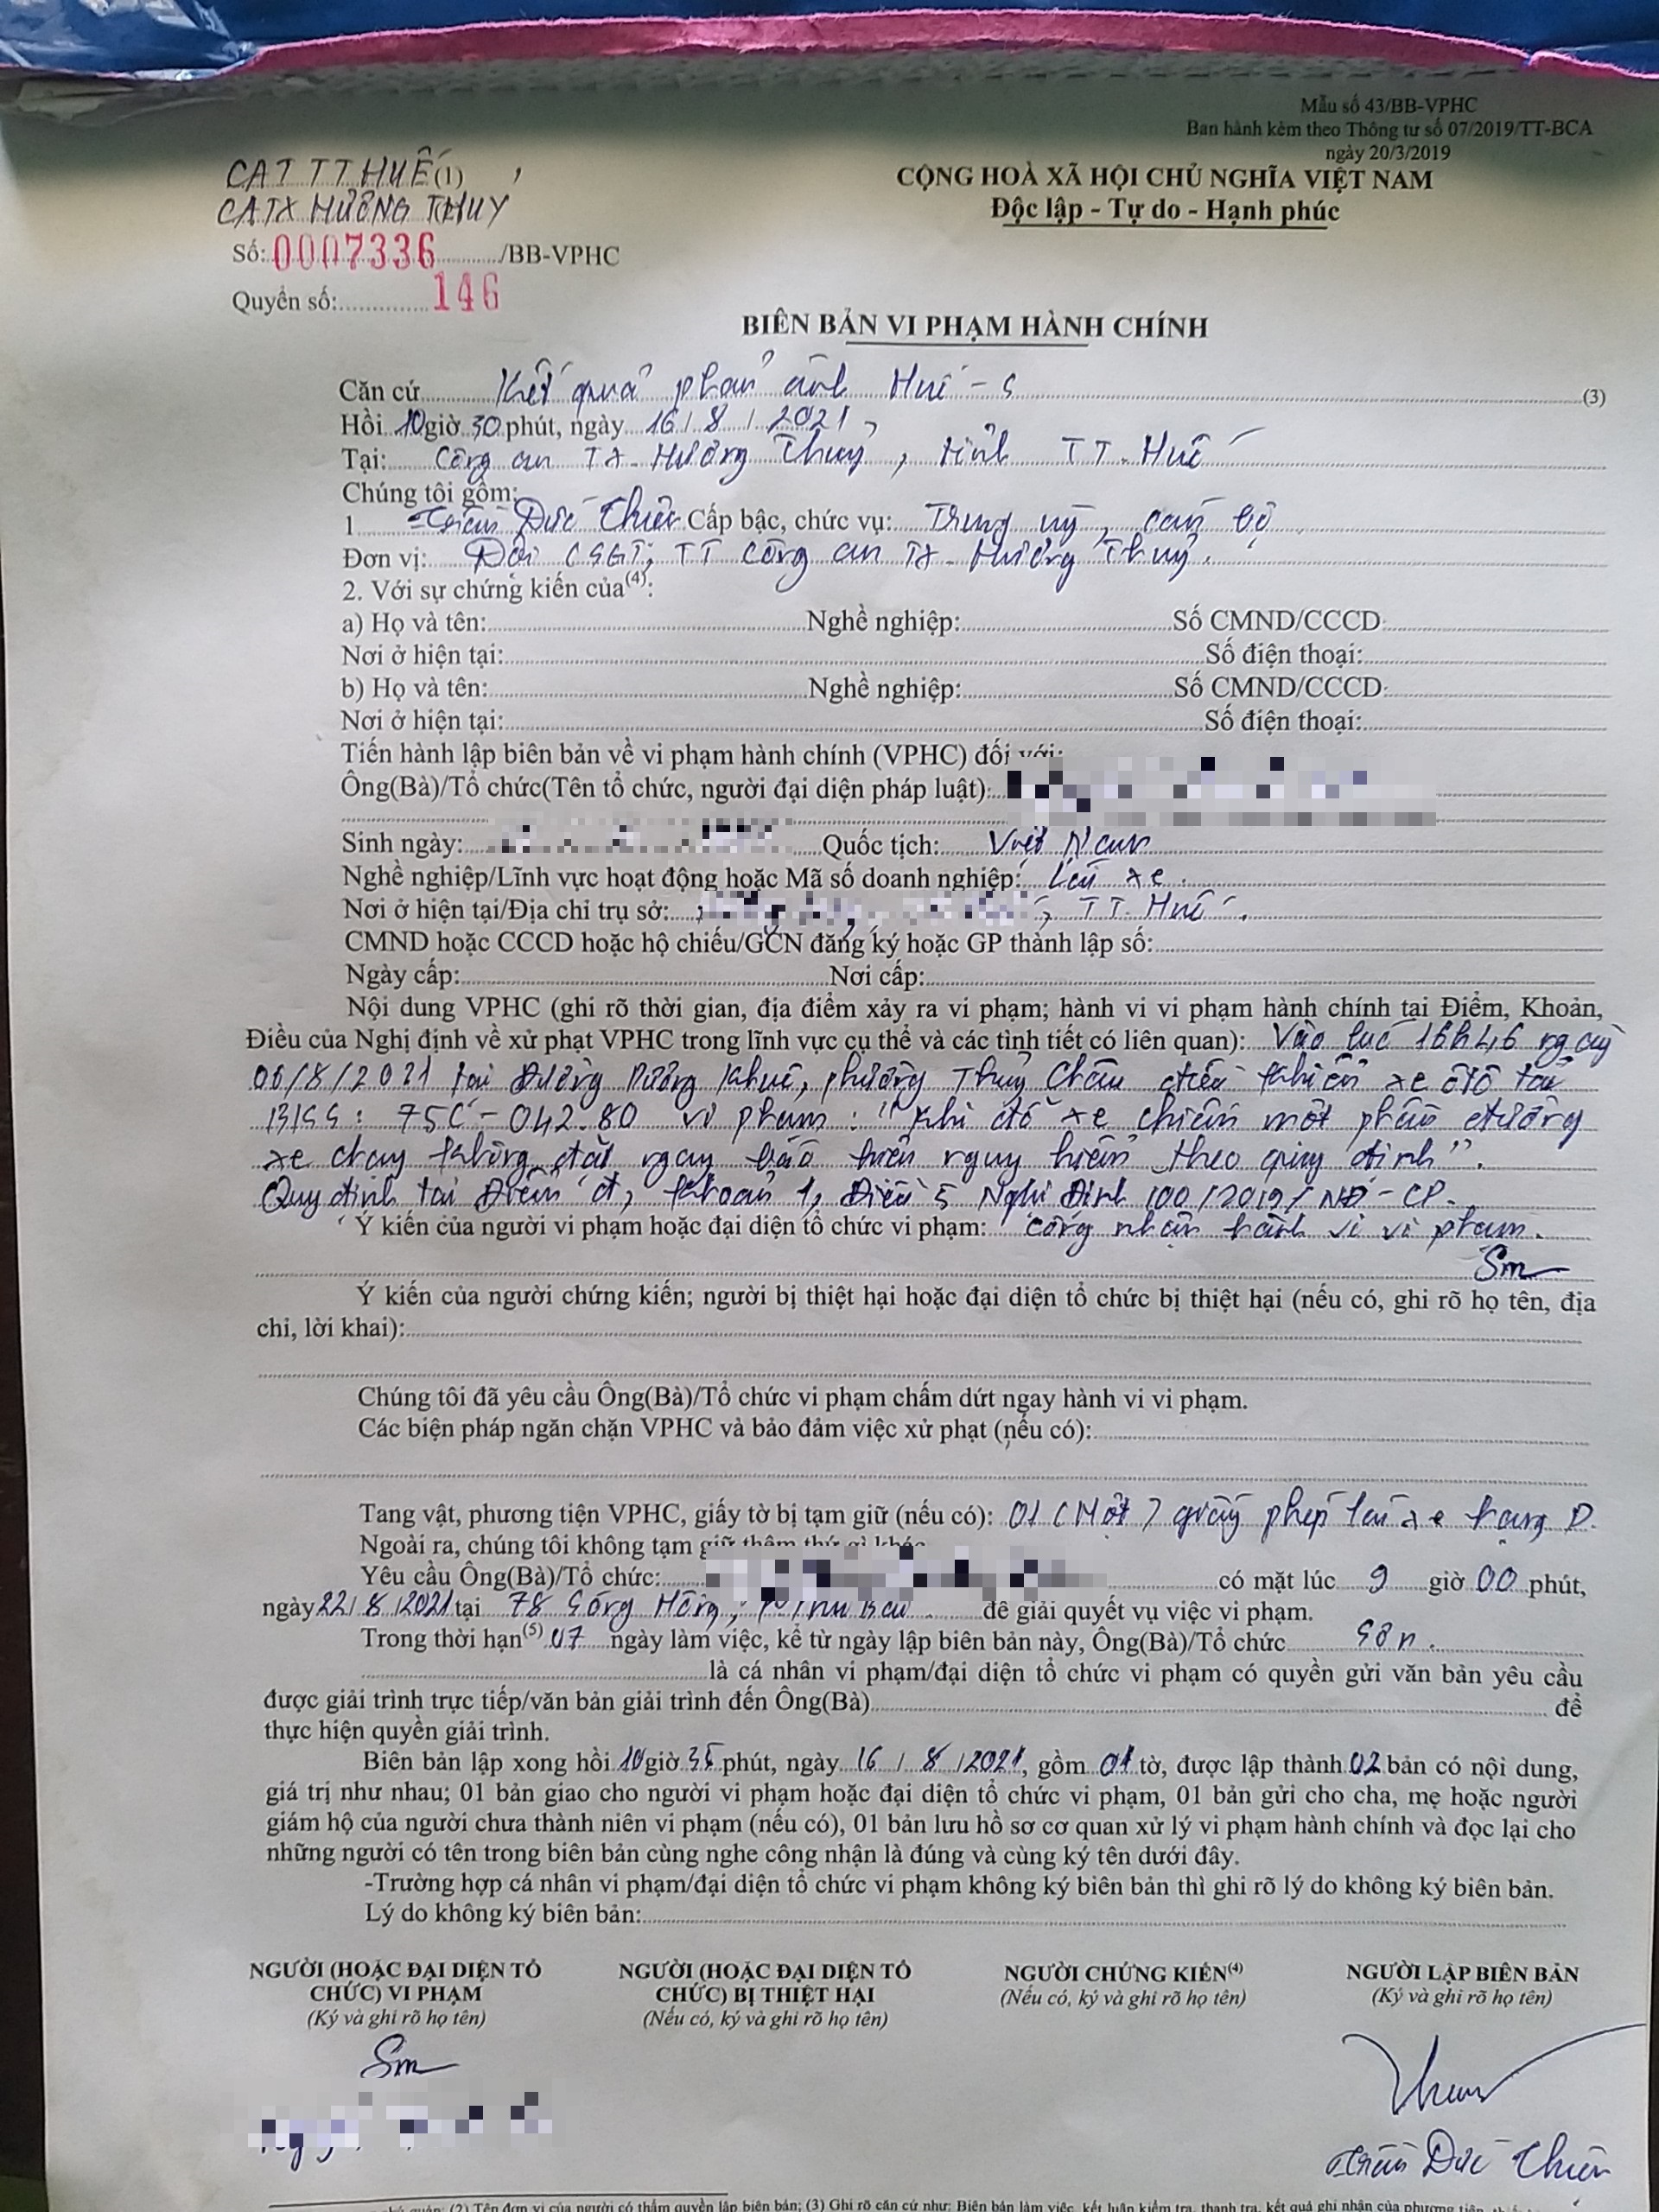 Mẫu số 43/BB-VPHC
Ban hành kèm theo Thông tư số 07/2019/TT-BCA
ngày 20/3/2019
CAT TT HUẾ (1)
CATX HƯƠNG THUỶ
CỘNG HOÀ XÃ HỘI CHỦ NGHĨA VIỆT NAM
Độc lập - Tự do - Hạnh phúc
Số: 0007336 /BB-VPHC
Quyển số: 146
BIÊN BẢN VI PHẠM HÀNH CHÍNH
Căn cứ Kết quả phản ánh Huế - S (3)
Hồi 10 giờ 30 phút, ngày 16/8/2021,
Tại: Công an TX. Hương Thuỷ, tỉnh TT. Huế
Chúng tôi gồm:
1 Trần Đức Cấp bậc, chức vụ: Trung uý, cán bộ
Đơn vị: Đội CSGT, TT Công an TX. Hương Thuỷ.
2. Với sự chứng kiến của(4):
a) Họ và tên: Nghề nghiệp: Số CMND/CCCD:
Nơi ở hiện tại: Số điện thoại:
b) Họ và tên: Nghề nghiệp: Số CMND/CCCD:
Nơi ở hiện tại: Số điện thoại:
Tiến hành lập biên bản về vi phạm hành chính (VPHC) đối với:
Ông(Bà)/Tổ chức(Tên tổ chức, người đại diện pháp luật):
Sinh ngày: Quốc tịch: Việt Nam
Nghề nghiệp/Lĩnh vực hoạt động hoặc Mã số doanh nghiệp: Lái xe.
Nơi ở hiện tại/Địa chỉ trụ sở: , TT. Huế.
CMND hoặc CCCD hoặc hộ chiếu/GCN đăng ký hoặc GP thành lập số:
Ngày cấp: Nơi cấp:
Nội dung VPHC (ghi rõ thời gian, địa điểm xảy ra vi phạm; hành vi vi phạm hành chính tại Điểm, Khoản,
Điều của Nghị định về xử phạt VPHC trong lĩnh vực cụ thể và các tình tiết có liên quan): Vào lúc 16h46 ngày
06/8/2021 tại Đường Dương Khuê, phường Thuỷ Châu điều khiển xe ôtô tải
BKS: 75C-042.80 vi phạm: "Khi đỗ xe chiếm một phần đường
xe chạy không đặt ngay báo hiệu nguy hiểm theo quy định".
Quy định tại Điểm đ, khoản 1, Điều 5 Nghị Định 100/2019/NĐ-CP.
Ý kiến của người vi phạm hoặc đại diện tổ chức vi phạm: Công nhận hành vi vi phạm.
Ý kiến của người chứng kiến; người bị thiệt hại hoặc đại diện tổ chức bị thiệt hại (nếu có, ghi rõ họ tên, địa
chỉ, lời khai):
Chúng tôi đã yêu cầu Ông(Bà)/Tổ chức vi phạm chấm dứt ngay hành vi vi phạm.
Các biện pháp ngăn chặn VPHC và bảo đảm việc xử phạt (nếu có):
Tang vật, phương tiện VPHC, giấy tờ bị tạm giữ (nếu có): 01 (Một) giấy phép lái xe hạng D.
Ngoài ra, chúng tôi không tạm giữ thêm thứ gì khác
Yêu cầu Ông(Bà)/Tổ chức: có mặt lúc 9 giờ 00 phút,
ngày 22/8/2021 tại 78 Sóng Hồng, để giải quyết vụ việc vi phạm.
Trong thời hạn(5) 07 ngày làm việc, kể từ ngày lập biên bản này, Ông(Bà)/Tổ chức
là cá nhân vi phạm/đại diện tổ chức vi phạm có quyền gửi văn bản yêu cầu
được giải trình trực tiếp/văn bản giải trình đến Ông(Bà) để
thực hiện quyền giải trình.
Biên bản lập xong hồi 10 giờ 35 phút, ngày 16/8/2021, gồm 01 tờ, được lập thành 02 bản có nội dung,
giá trị như nhau; 01 bản giao cho người vi phạm hoặc đại diện tổ chức vi phạm, 01 bản gửi cho cha, mẹ hoặc người
giám hộ của người chưa thành niên vi phạm (nếu có), 01 bản lưu hồ sơ cơ quan xử lý vi phạm hành chính và đọc lại cho
những người có tên trong biên bản cùng nghe công nhận là đúng và cùng ký tên dưới đây.
-Trường hợp cá nhân vi phạm/đại diện tổ chức vi phạm không ký biên bản thì ghi rõ lý do không ký biên bản.
Lý do không ký biên bản:
NGƯỜI (HOẶC ĐẠI DIỆN TỔ CHỨC) VI PHẠM
(Ký và ghi rõ họ tên)
NGƯỜI (HOẶC ĐẠI DIỆN TỔ CHỨC) BỊ THIỆT HẠI
(Nếu có, ký và ghi rõ họ tên)
NGƯỜI CHỨNG KIẾN(4)
(Nếu có, ký và ghi rõ họ tên)
NGƯỜI LẬP BIÊN BẢN
(Ký và ghi rõ họ tên)
Trần Đức
(2) Tên đơn vị của người có thẩm quyền lập biên bản; (3) Ghi rõ căn cứ như: Biên bản làm việc, kết luận kiểm tra, thanh tra, kết quả ghi nhận của phương tiện